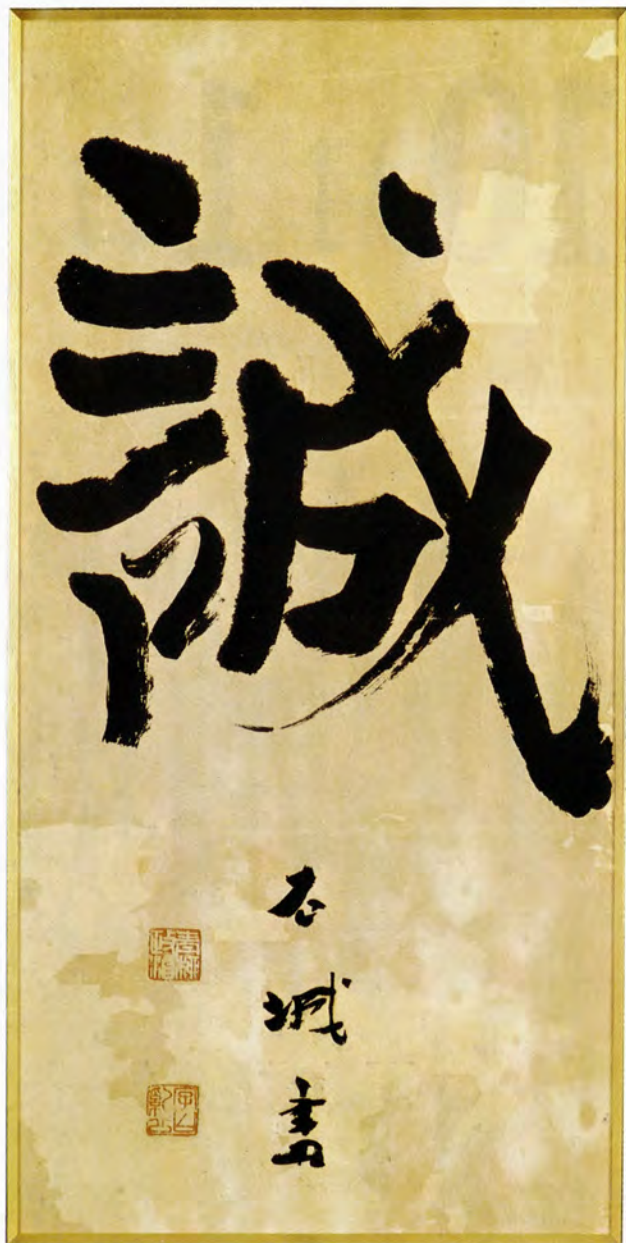 誠
石城書